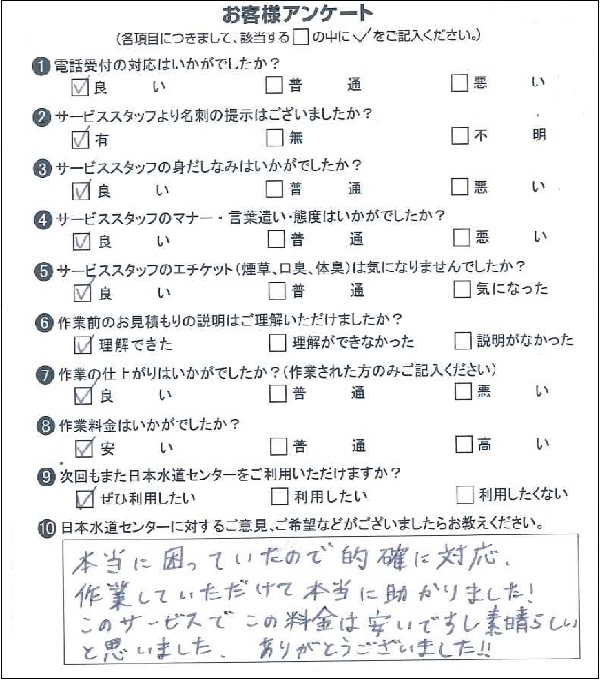 お客様アンケート
(各項目につきまして、該当する□の中に✓をご記入ください。)
❶ 電話受付の対応はいかがでしたか?
☑ 良い □ 普通 □ 悪い
❷ サービススタッフより名刺の提示はございましたか?
☑ 有 □ 無 □ 不明
❸ サービススタッフの身だしなみはいかがでしたか?
☑ 良い □ 普通 □ 悪い
❹ サービススタッフのマナー・言葉遣い・態度はいかがでしたか?
☑ 良い □ 普通 □ 悪い
❺ サービススタッフのエチケット(煙草、口臭、体臭)は気になりませんでしたか?
☑ 良い □ 普通 □ 気になった
❻ 作業前のお見積もりの説明はご理解いただけましたか?
☑ 理解できた □ 理解ができなかった □ 説明がなかった
❼ 作業の仕上がりはいかがでしたか?(作業された方のみご記入ください)
☑ 良い □ 普通 □ 悪い
❽ 作業料金はいかがでしたか?
☑ 安い □ 普通 □ 高い
❾ 次回もまた日本水道センターをご利用いただけますか?
☑ ぜひ利用したい □ 利用したい □ 利用したくない
❿ 日本水道センターに対するご意見、ご希望などがございましたらお教えください。
本当に困っていたので的確に対応、
作業していただけて本当に助かりました!
このサービスでこの料金は安いですし素晴らしい
と思いました。ありがとうございました!!